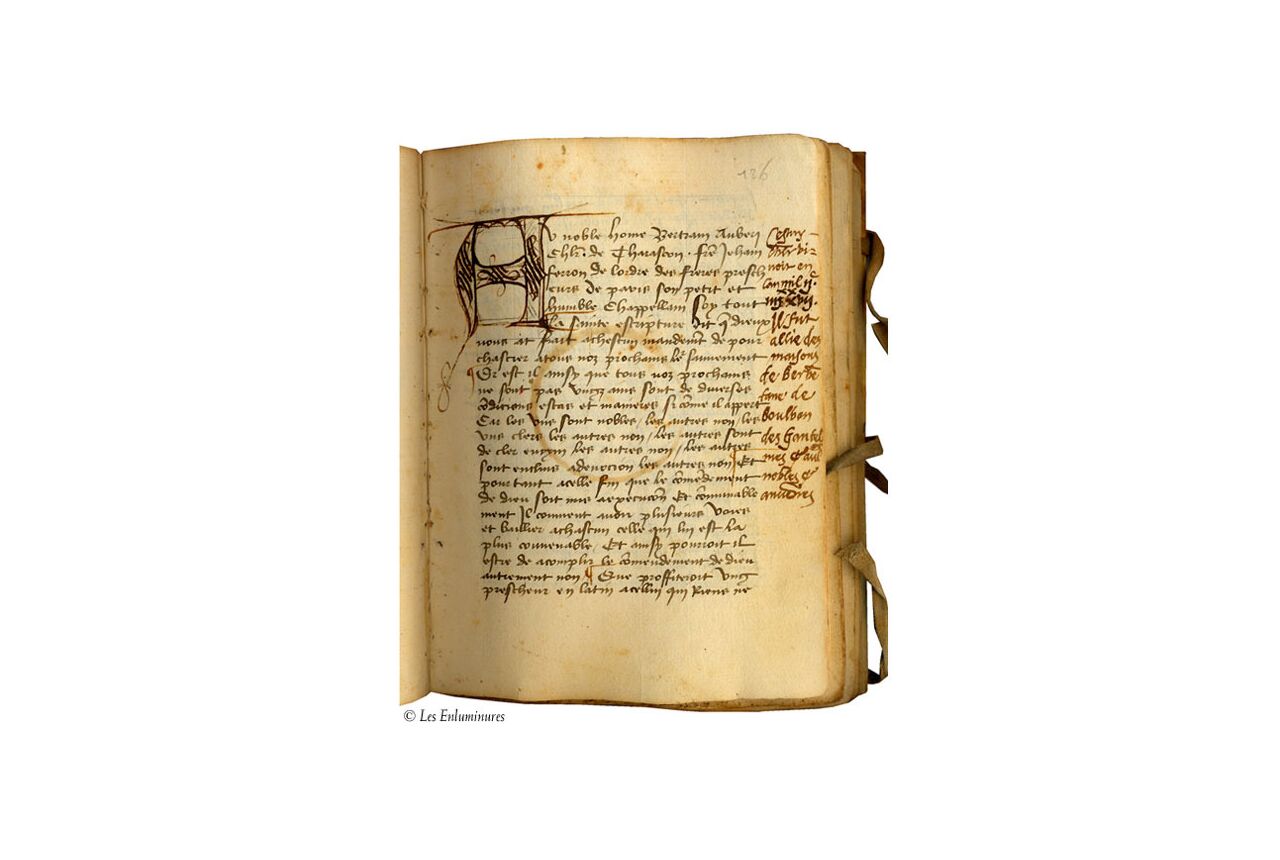 126
Au noble home Bertram Auberi
Chlr. de Tharascon. Fre Jehan
ferron de lordre des freres presch
eurs de paris son petit et
humble Chappellain Soy tout
La sainte escripture dit q̄ dieux
nous at fait achascun mandemt de pour
chascier atous noz prochains le sauvement
Or est il ainsy que tous noz prochains
ne sont pas vngz ains sont de diverses
cōdicions estas et manieres si cōme il appert
Car les vns sont nobles / les autres non / les
vns clers les autres non / les autres sont
de cler engin les autres non / les autres
sont enclins adevocion les autres non Et
pourtant acelle fin que le cōmēdement
de dieu soit mis aexecucōn Et cōvenable
ment Il convient avoir plusieurs voies
et baillier achascun celle qui lui est la
plus convenable / Et ainsy pourroit il
estre de acomplir le cōmendement de dieu
autrement non Que proffiteroit vng
prescheur en latin acellui qui Riens ne
Cestuy
viv
noit en
Il fut
allie des
maisons
de
de
boulbon
des Gantel
mes
nobles &
© Les Enluminures